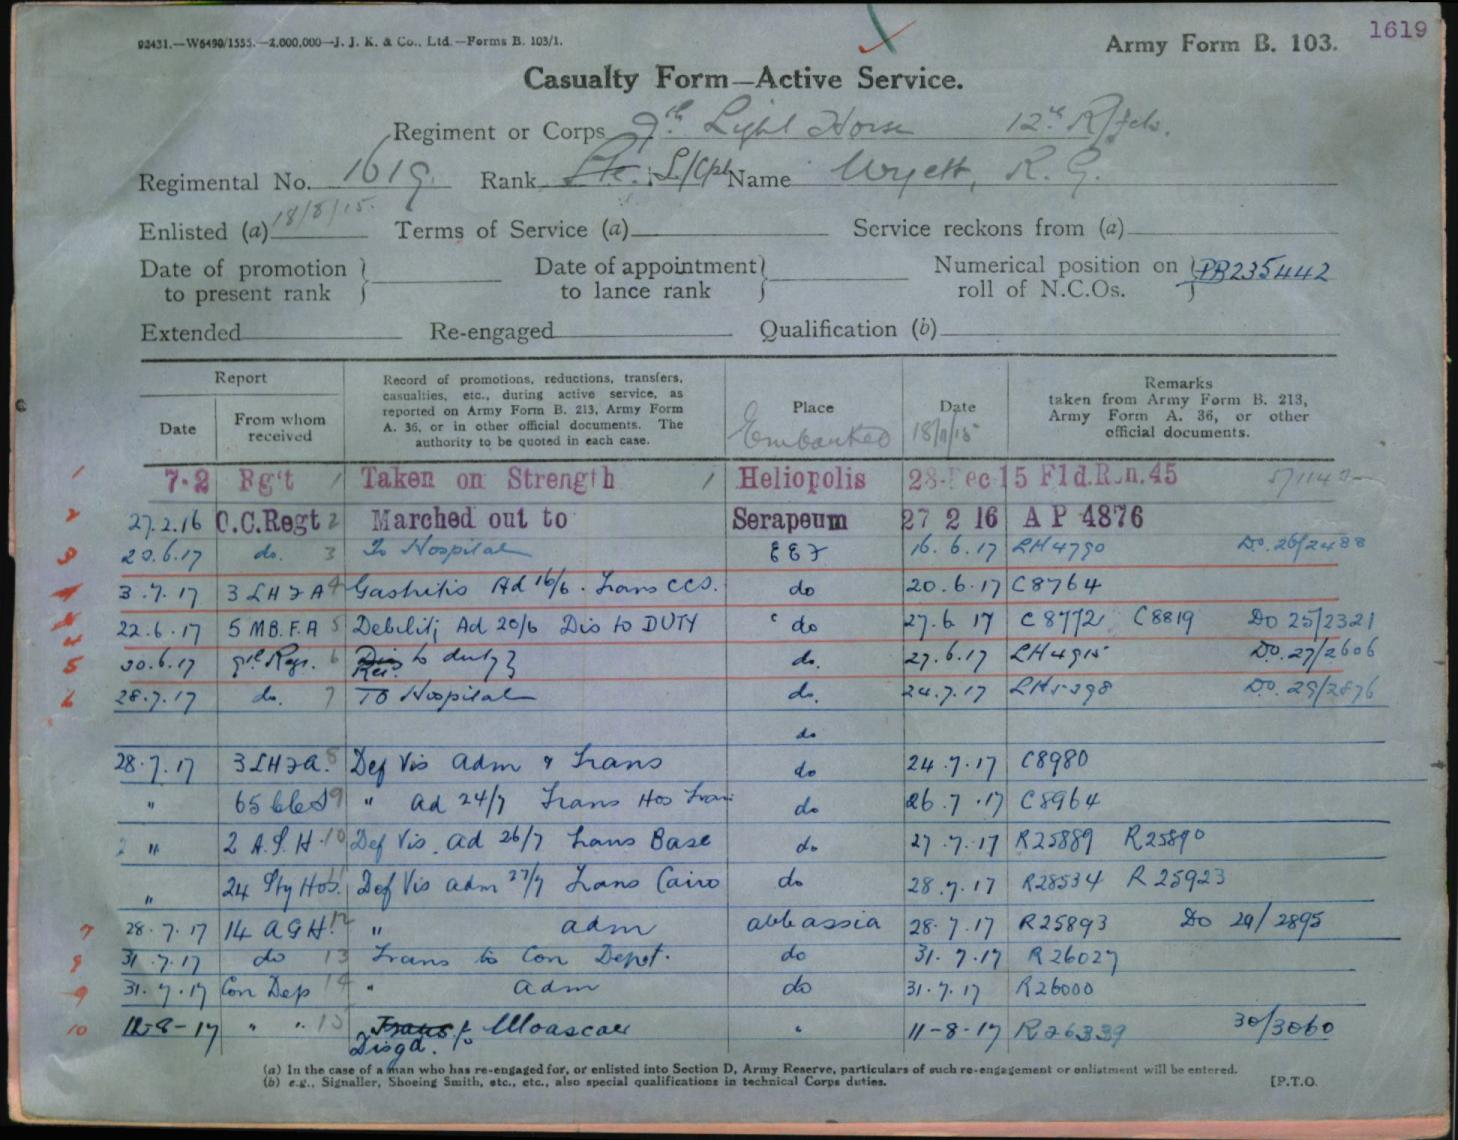 92431.—W6490/1555.—2,000,000—J. J. K. & Co., Ltd.—Forms B. 103/1.
Army Form B. 103.
1619
Casualty Form—Active Service.
Regiment or Corps 9th Light Horse 12th R/fcts.
Regimental No. 1619. Rank Pte. L/Cpl Name Wyett, R. G.
Enlisted (a) 18/8/15. Terms of Service (a) Service reckons from (a)
Date of promotion to present rank } Date of appointment to lance rank } Numerical position on roll of N.C.Os. } PB235442
Extended Re-engaged Qualification (b)
Report
Date
From whom received
Record of promotions, reductions, transfers, casualties, etc., during active service, as reported on Army Form B. 213, Army Form A. 36, or in other official documents. The authority to be quoted in each case.
Place
Embarked
Date
18/11/15
Remarks
taken from Army Form B. 213, Army Form A. 36, or other official documents.
1 7·2 Rg't 1 Taken on Strength 1 Heliopolis 28 Dec 15 Fld.R.n.45
2 27.2.16 O.C.Regt 2 Marched out to Serapeum 27 2 16 A P 4876
3 20.6.17 do. 3 To Hospital EEF 16.6.17 LH4790 Do. 26/2488
3.7.17 3 LHFA 4 Gastritis Ad 16/6. Trans CCS. do 20.6.17 C8764
4 22.6.17 5 MB.F.A 5 Debility Ad 20/6 Dis to DUTY do 27.6 17 C8772 C8819 Do 25/2321
5 30.6.17 9th Regt. 6 Dis to duty } do. 27.6.17 LH4915 Do. 27/2606
6 28.7.17 do. 7 TO Hospital do. 24.7.17 LH5298 Do. 29/2876
do
28.7.17 3 LHFA. 8 Def Vis adm & Trans do 24.7.17 C8980
" 65 CCS 9 " ad 24/7 Trans Hos Train do 26.7.17 C8964
" 2 A.S.H. 10 Def Vis. ad 26/7 Trans Base do 27.7.17 R25889 R25890
" 24 Sty Hos. Def Vis adm 27/7 Trans Cairo do 28.7.17 R28534 R25923
7 28.7.17 14 AGH. 12 " adm abbassia 28.7.17 R25893 Do 29/2895
8 31.7.17 do 13 Trans to Con Depot. do 31.7.17 R26027
9 31.7.17 Con Dep 14 " adm do 31.7.17 R26000
10 12-8-17 " " 15 Trans to Moascar " 11-8-17 R26339 30/3060
Disgd. to
(a) In the case of a man who has re-engaged for, or enlisted into Section D, Army Reserve, particulars of such re-engagement or enlistment will be entered.
(b) e.g., Signaller, Shoeing Smith, etc., etc., also special qualifications in technical Corps duties.
[P.T.O.